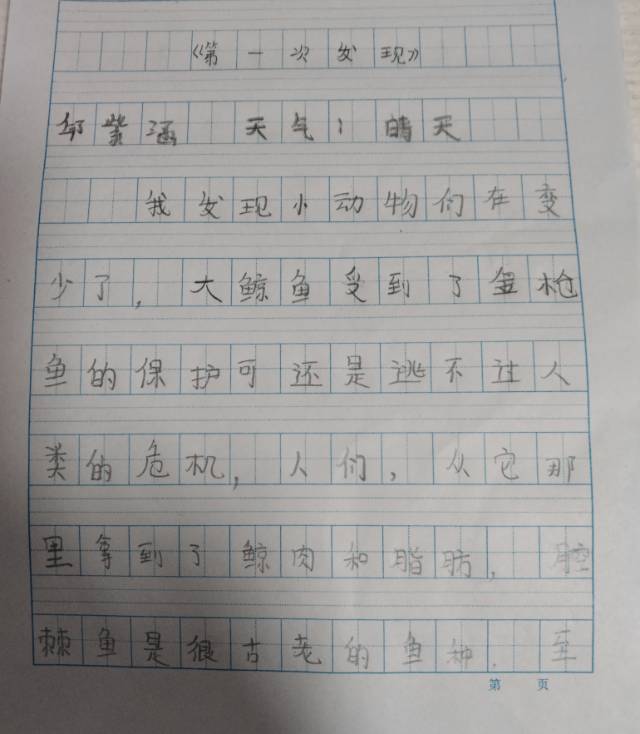 《第一次发现》
邹紫涵 天气:晴天
我发现小动物们在变
少了,大鲸鱼受到了金枪
鱼的保护可还是逃不过人
类的危机,人们,从它那
里拿到了鲸肉和脂肪,腔
棘鱼是很古老的鱼种.
第 页